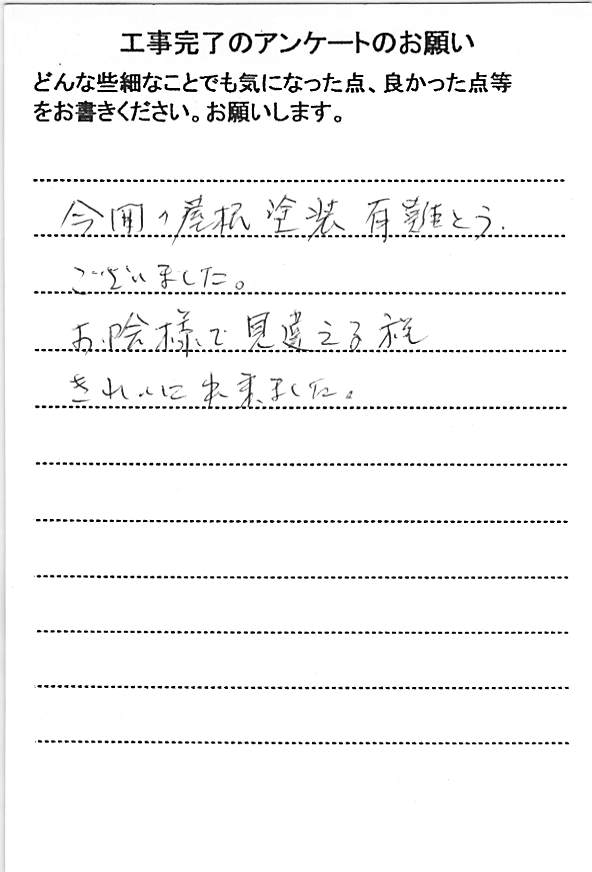 工事完了のアンケートのお願い
どんな些細なことでも気になった点、良かった点等
をお書きください。お願いします。
今回の屋根塗装有難とう
ございました。
お陰様で見違える程
きれいに出来ました。